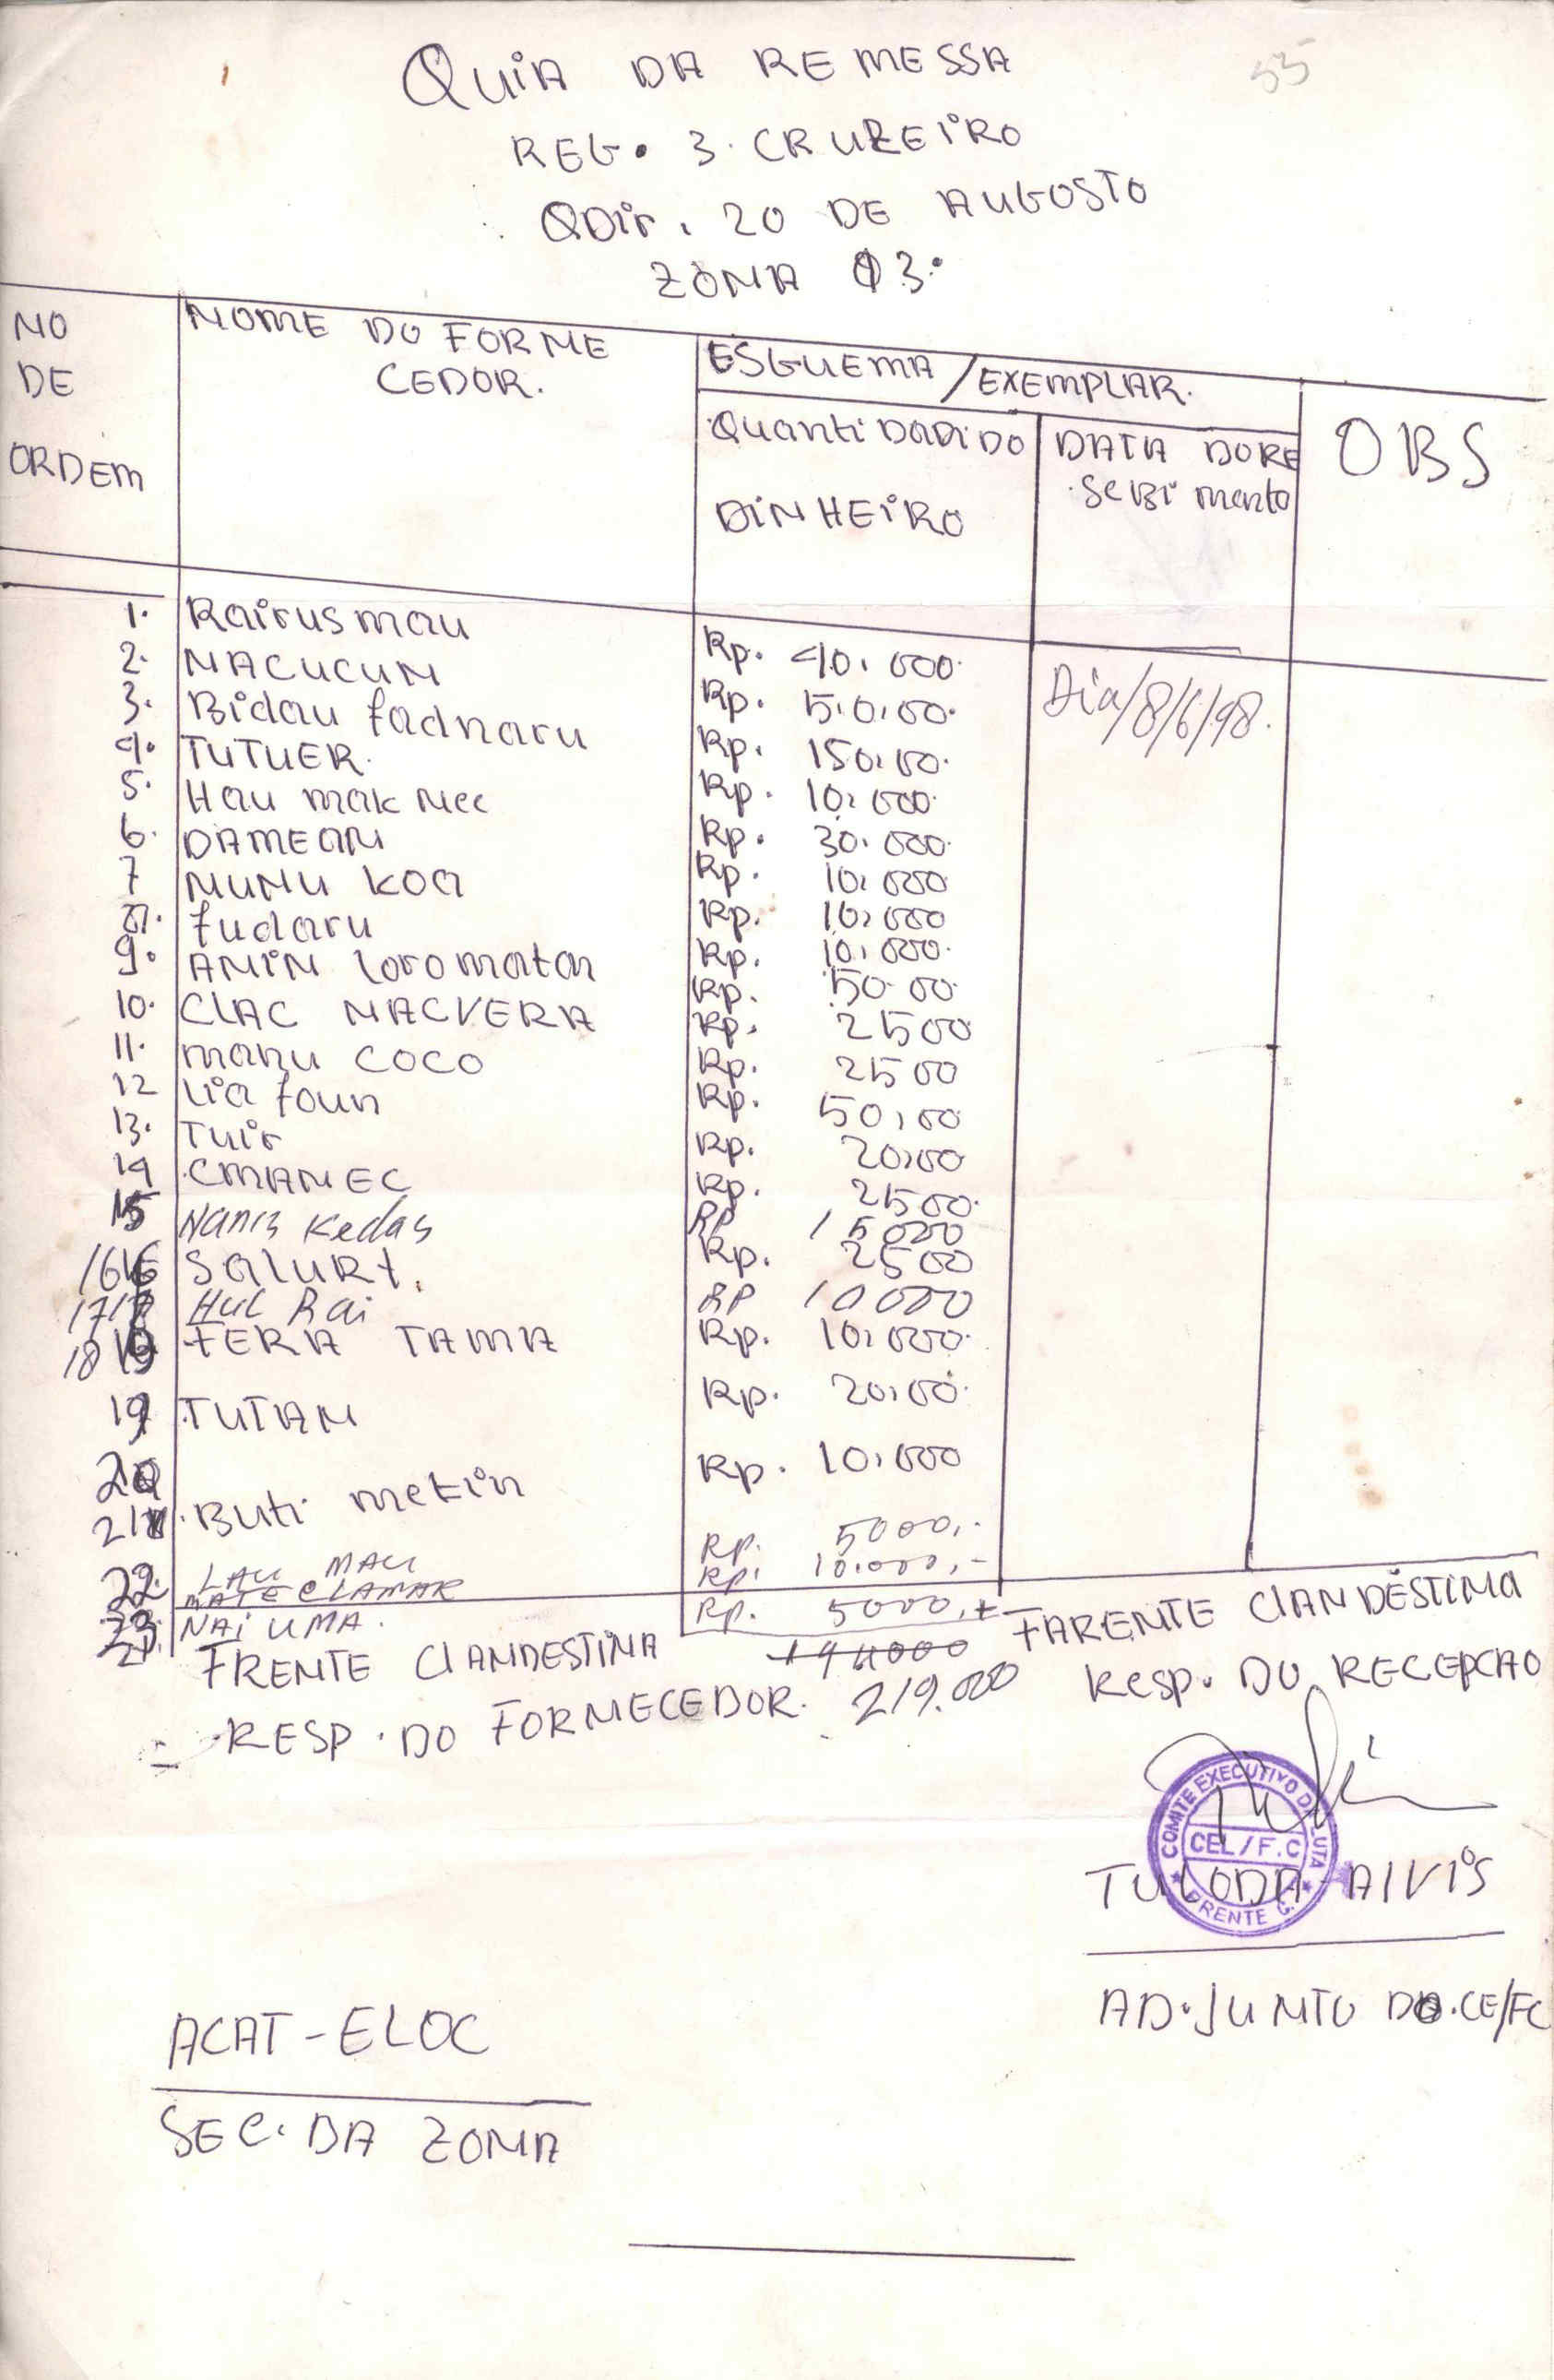 55
QUIA DA REMESSA
REG. 3. CRUZEIRO
QDir. 20 DE AUGOSTO
ZONA 03.
NO DE ORDEM
NOME DO FORNE CEDOR.
ESGUEMA / EXEMPLAR.
QuantiDaDiDo DiNHEiRO
DATA DORE SeBimento
OBS
1. Rairusmau Rp. 40.000.
2. NACUCUN Rp. 5.0.00.
3. Bidau fadnaru Rp. 150.00.
4. TUTUER. Rp. 10.000.
5. Hau mak Nee Rp. 30.000.
6. DAMEAN Rp. 10.000
7 MUNU KOA Rp. 10.000
8. fudaru Rp. 10.000.
9. ANiN loromatan Rp. 50.00.
10. CLAC NACVERA Rp. 2500
11. manu COCO Rp. 2500
12 Lia foun Rp. 50.00
13. Tuir Rp. 20.00
14 CMANEC Rp. 2500.
15 Nanis Kedas RP 15000
16 SALURT. Rp. 2500
17 Hul Rai RP 10000
18 FERA TAMA Rp. 10.000.
19 TUTAN Rp. 20.00.
20 Rp. 10.000
21 Buti metin RP. 5000,-
22. LAU MAU Rp. 10.000,-
MATE CLAMAR
23. NAi UMA. Rp. 5000,+
Dia/8/6/98.
219.000
FRENTE CLANDESTINA
RESP. DO FORNECEDOR.
FARENTE CLANDESTINA
Resp. DO RECEPCAO
COMITE EXECUTIVO DA LUTA
CEL/F.C
FRENTE C.
TULODA-ALVIS
AD.JUNTO DO.CE/FC
ACAT-ELOC
SEC. DA ZONA